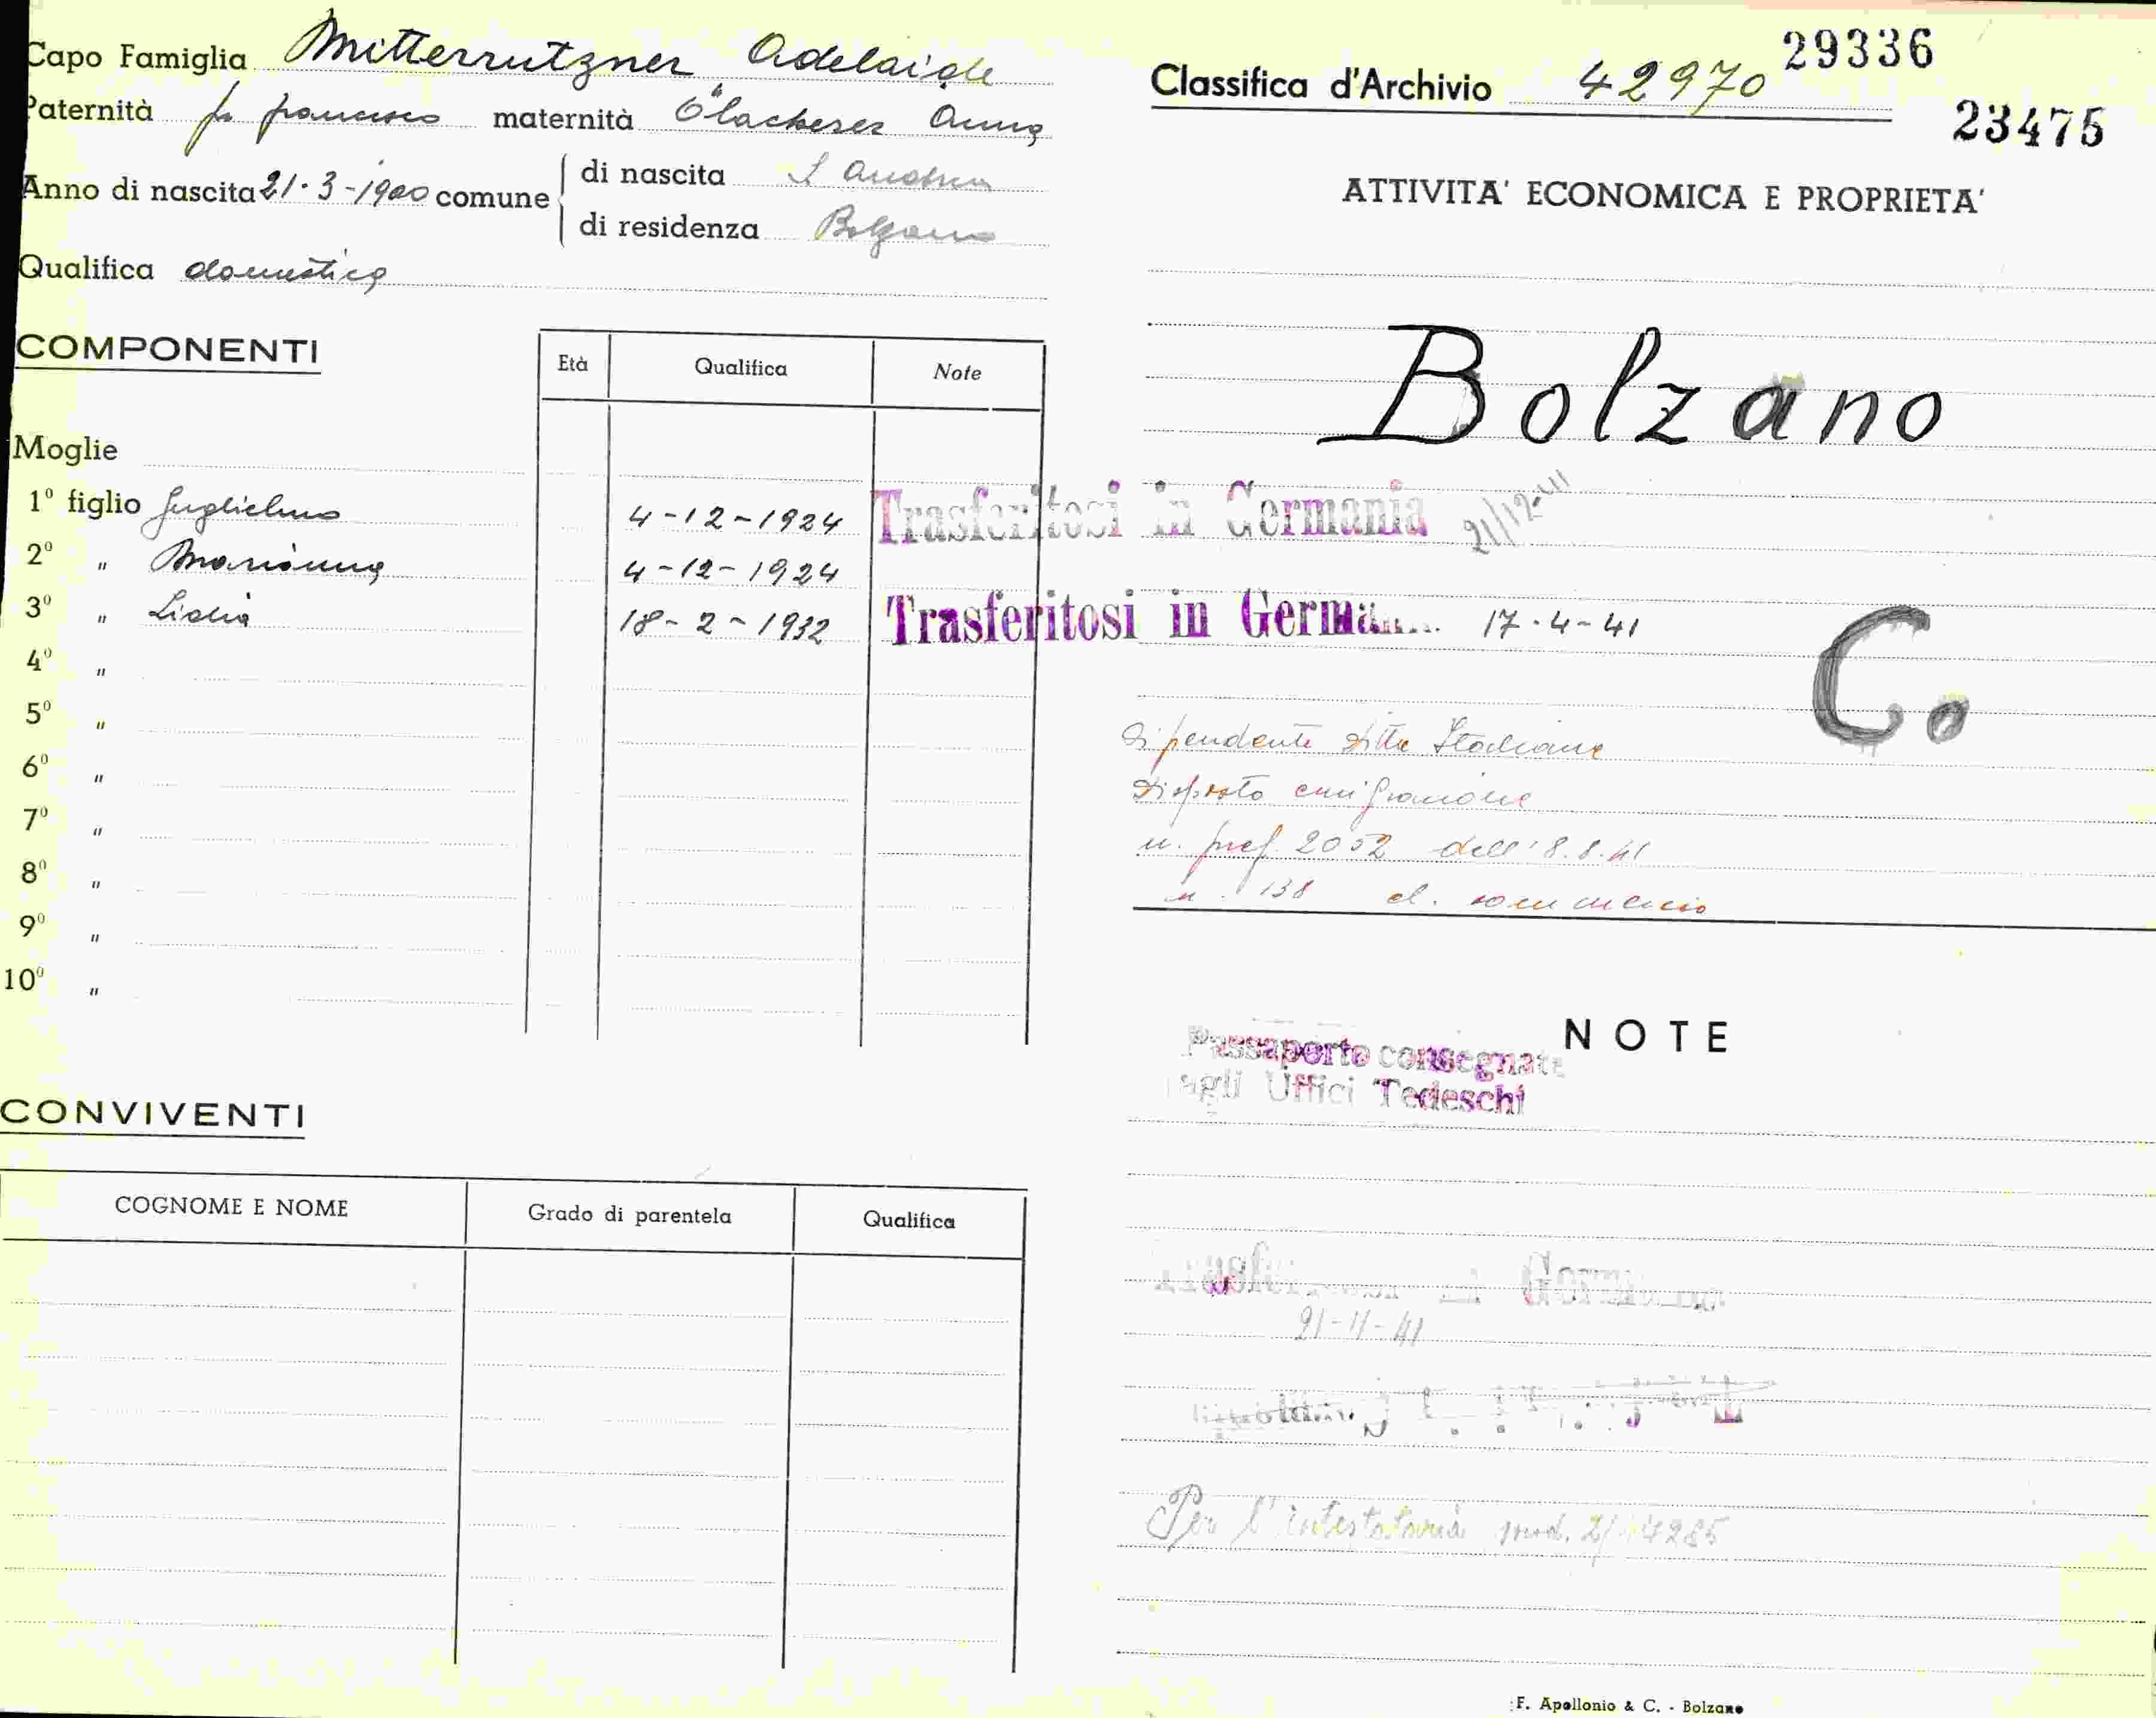 Capo Famiglia Mitterrutzner Adelaide
Paternità fu francesco maternità Anna
Anno di nascita 21-3-1900 comune
di nascita S Andrea
di residenza Bolzano
Qualifica domestica
COMPONENTI
Età Qualifica Note
Moglie
1º figlio Guglielmo 4-12-1924 Trasferitosi in Germania 21/12-41
2º " Marianna 4-12-1924
3º " Lidia 18-2-1932 Trasferitosi in Germa... 17-4-41
4º "
5º "
6º "
7º "
8º "
9º "
10º "
CONVIVENTI
COGNOME E NOME Grado di parentela Qualifica
Classifica d'Archivio 42970 29336
23475
ATTIVITA' ECONOMICA E PROPRIETA'
Bolzano
C.
Dipendente ditta Italiana
disposto emigrazione
n. pref. 2052 dell'8.8.41
n. 138 el. commercio
NOTE
Passaporto consegnato
agli Uffici Tedeschi
in Germania
21-11-41
Per l'intestataria mod. 2/14285
F. Apollonio & C. - Bolzano